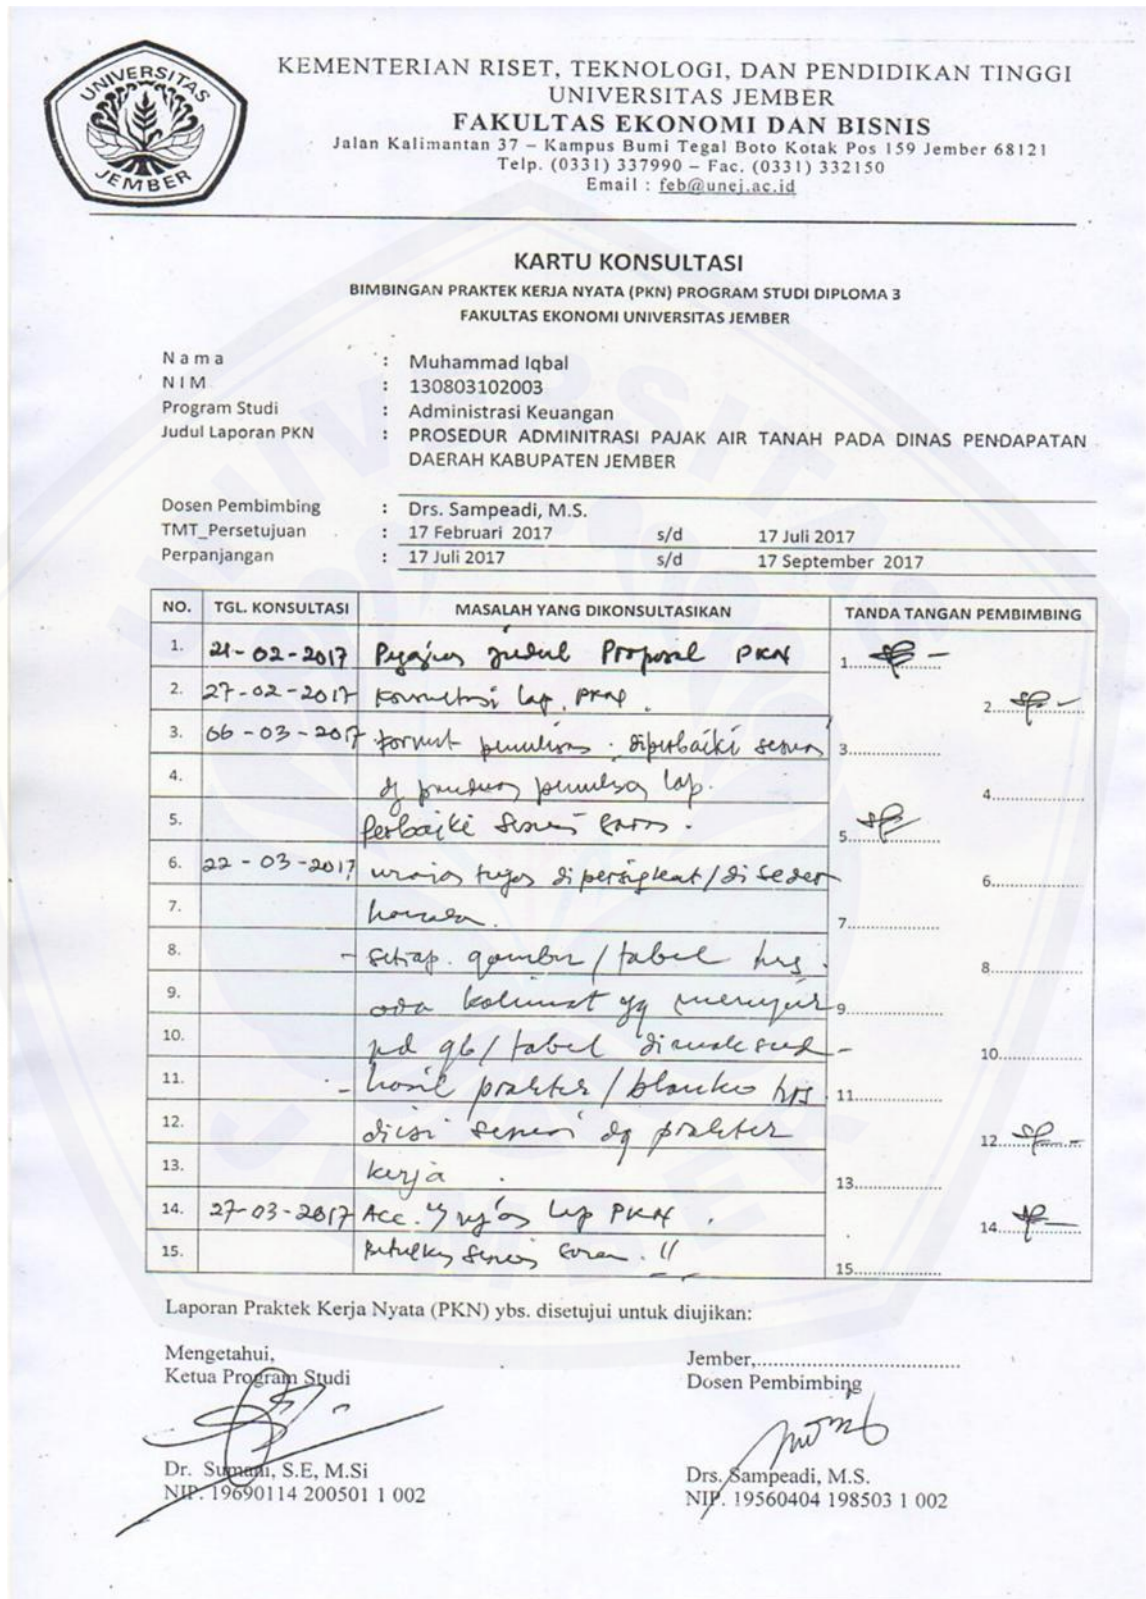 UNIVERSITAS
JEMBER
KEMENTERIAN RISET, TEKNOLOGI, DAN PENDIDIKAN TINGGI
UNIVERSITAS JEMBER
FAKULTAS EKONOMI DAN BISNIS
Jalan Kalimantan 37 – Kampus Bumi Tegal Boto Kotak Pos 159 Jember 68121
Telp. (0331) 337990 – Fac. (0331) 332150
Email : feb@unej.ac.id
KARTU KONSULTASI
BIMBINGAN PRAKTEK KERJA NYATA (PKN) PROGRAM STUDI DIPLOMA 3
FAKULTAS EKONOMI UNIVERSITAS JEMBER
N a m a : Muhammad Iqbal
N I M : 130803102003
Program Studi : Administrasi Keuangan
Judul Laporan PKN : PROSEDUR ADMINITRASI PAJAK AIR TANAH PADA DINAS PENDAPATAN
DAERAH KABUPATEN JEMBER
Dosen Pembimbing : Drs. Sampeadi, M.S.
TMT_Persetujuan : 17 Februari 2017 s/d 17 Juli 2017
Perpanjangan : 17 Juli 2017 s/d 17 September 2017
NO. TGL. KONSULTASI MASALAH YANG DIKONSULTASIKAN TANDA TANGAN PEMBIMBING
1. 21-02-2017 judul Proposal PKN 1.....
2. 27-02-2017 Konsultasi lap. PKN. 2.....
3. 06-03-2017 format penulisan. diperbaiki sesuai 3.....
4. dg panduan penulisan lap. 4.....
5. Perbaiki sesuai saran. 5.....
6. 22-03-2017 uraian tugas dipersingkat/di seder 6.....
7. hanakan. 7.....
8. - setiap gambar/tabel hrs 8.....
9. ada kalimat yg 9.....
10. pd gb/tabel dimaksud 10.....
11. - hasil praktek/blanko hrs 11.....
12. diisi sesuai dg praktek 12.....
13. kerja. 13.....
14. 27-03-2017 Acc. lap PKN. 14.....
15. Betulkan sesuai saran. !! 15.....
Laporan Praktek Kerja Nyata (PKN) ybs. disetujui untuk diujikan:
Mengetahui,
Ketua Program Studi
Dr. Sumani, S.E, M.Si
NIP. 19690114 200501 1 002
Jember,.....
Dosen Pembimbing
Drs. Sampeadi, M.S.
NIP. 19560404 198503 1 002